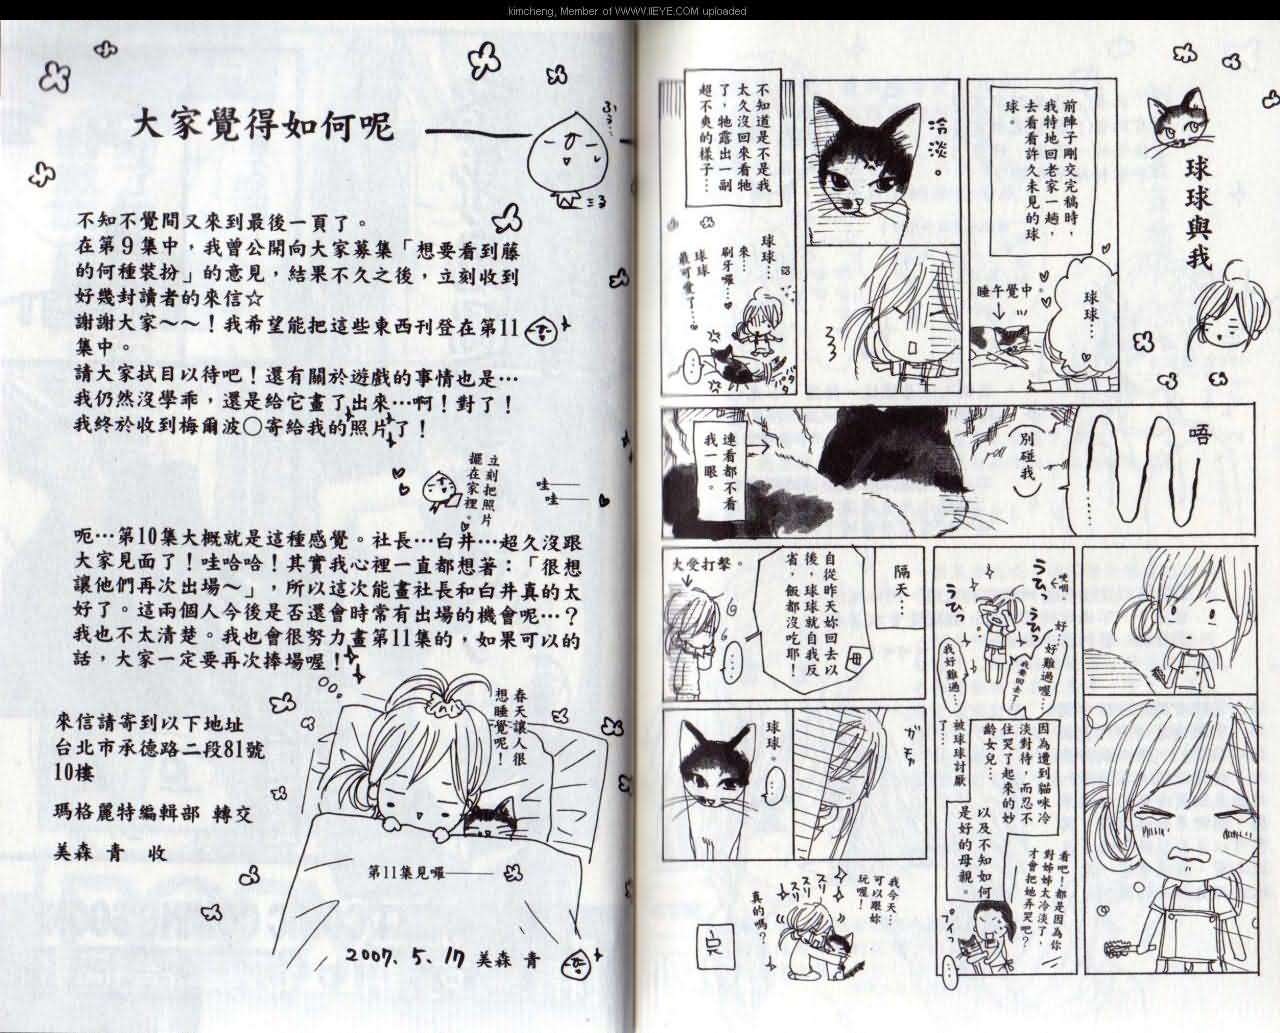 kimcheng, Member of WWW.IIEYE.COM uploaded
球球與我
前陣子剛交完稿時，
我特地回老家一趟，
去看看許久未見的球
球。
球球…
睡午覺中
冷淡。
不知道是不是我
太久沒回來看牠
了，牠露出一副
超不爽的樣子…
球球…
來…
刷牙囉…
球球
最可愛了…
唔
別碰我
連看都不看
我一眼。
好…好難過喔…
我要回去了
我好難過…
うひっ
うひっ
うひっ
因為遭到貓咪冷
淡對待，而忍不
住哭了起來的妙
齡女兒…
被球球討厭
了…
以及不知如何
是好的母親。
看吧！都是因為你
對姊姊太冷淡了，
才會把她弄哭吧？
プイっ
隔天…
自從昨天妳回去以
後，球球就自我反
省，飯都沒吃耶！
母
大受打擊。
球球。
我今天…
可以跟妳
玩喔！
スリ
スリ
スリ
真的嗎？
完
大家覺得如何呢
不知不覺間又來到最後一頁了。
在第９集中，我曾公開向大家募集「想要看到藤
的何種裝扮」的意見，結果不久之後，立刻收到
好幾封讀者的來信☆
謝謝大家～～！我希望能把這些東西刊登在第11
集中。
請大家拭目以待吧！還有關於遊戲的事情也是…
我仍然沒學乖，還是給它畫了出來…啊！對了！
我終於收到梅爾波〇寄給我的照片了！
立刻把照片
擺在家裡。
哇——
哇——
呃…第10集大概就是這種感覺。社長…白井…超久沒跟
大家見面了！哇哈哈！其實我心裡一直都想著：「很想
讓他們再次出場～」，所以這次能畫社長和白井真的太
好了。這兩個人今後是否還會時常有出場的機會呢…？
我也不太清楚。我也會很努力畫第11集的，如果可以的
話，大家一定要再次捧場喔！
春天讓人很
想睡覺呢！
來信請寄到以下地址
台北市承德路二段81號
10樓
瑪格麗特編輯部 轉交
美森 青 收
第11集見囉——
2007. 5. 17 美森 青